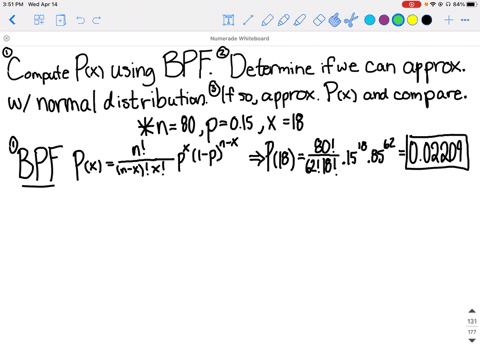 3:51 PM Wed Apr 14
84%
Numerade Whiteboard
① Compute P(x) using BPF. ② Determine if we can approx.
w/ normal distribution. ③ If so, approx. P(x) and compare.
* n = 80, p = 0.15, x = 18
① BPF P(x) = n! / (n-x)! x! p^x (1-p)^(n-x) ⇒ P(18) = 80! / 62! 18! · .15^18 · .85^62 = 0.02209
131
177